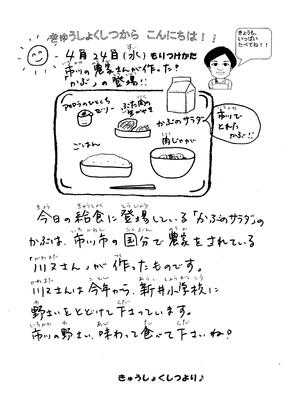 きゅうしょくしつから こんにちは！！
4月24日(水) もりつけかた
きょうも、
いっぱい
たべてね！！
市川の農家さんが作った！
「かぶ」の登場！！
アセロラのひとくち
ゼリー
ぶた肉の
しょうがやき
かぶのサラダ
市川で
とれた
かぶ！！
ごはん
肉じゃが
今日の給食に登場している「かぶのサラダ」の
かぶは、市川市の国分で農家をされている
「川又さん」が作ったものです。
川又さんは今年から、新井小学校に
野さいをとどけて下さっています。
市川の野さい、味わって食べて下さいね？
きゅうしょくしつより♪